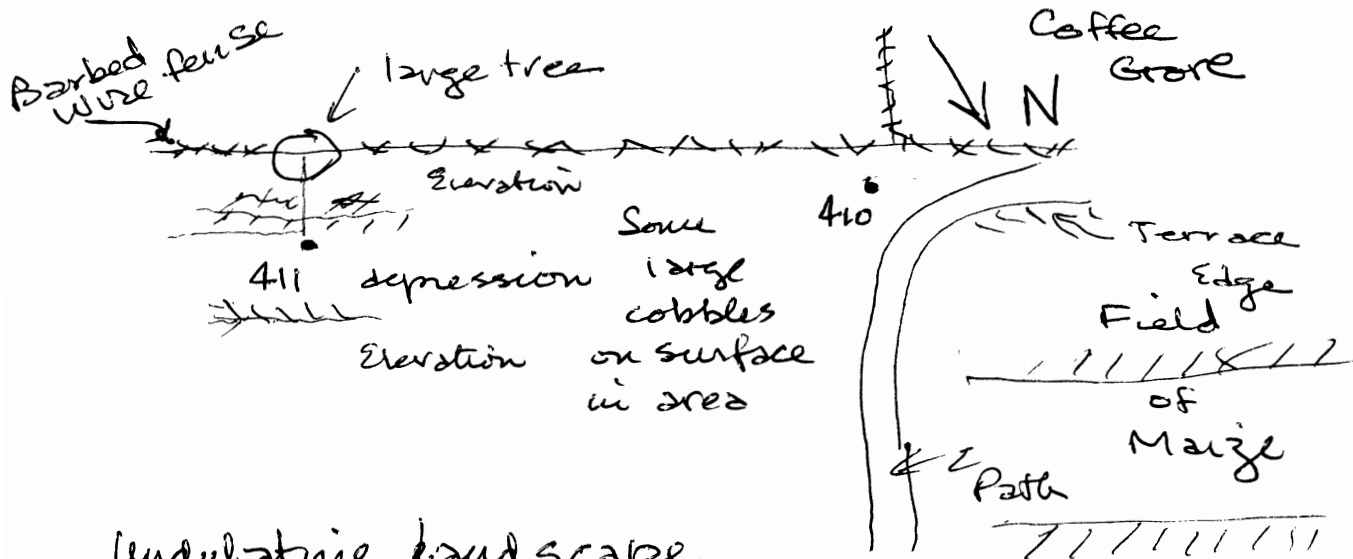 Barbed
wire fense
large tree
Coffee
Grove
N
Elevation
410
411
depression
Some
large
cobbles
on surface
in area
Elevation
Terrace
Edge
Field
of
Maize
Path
Undulating Landscape